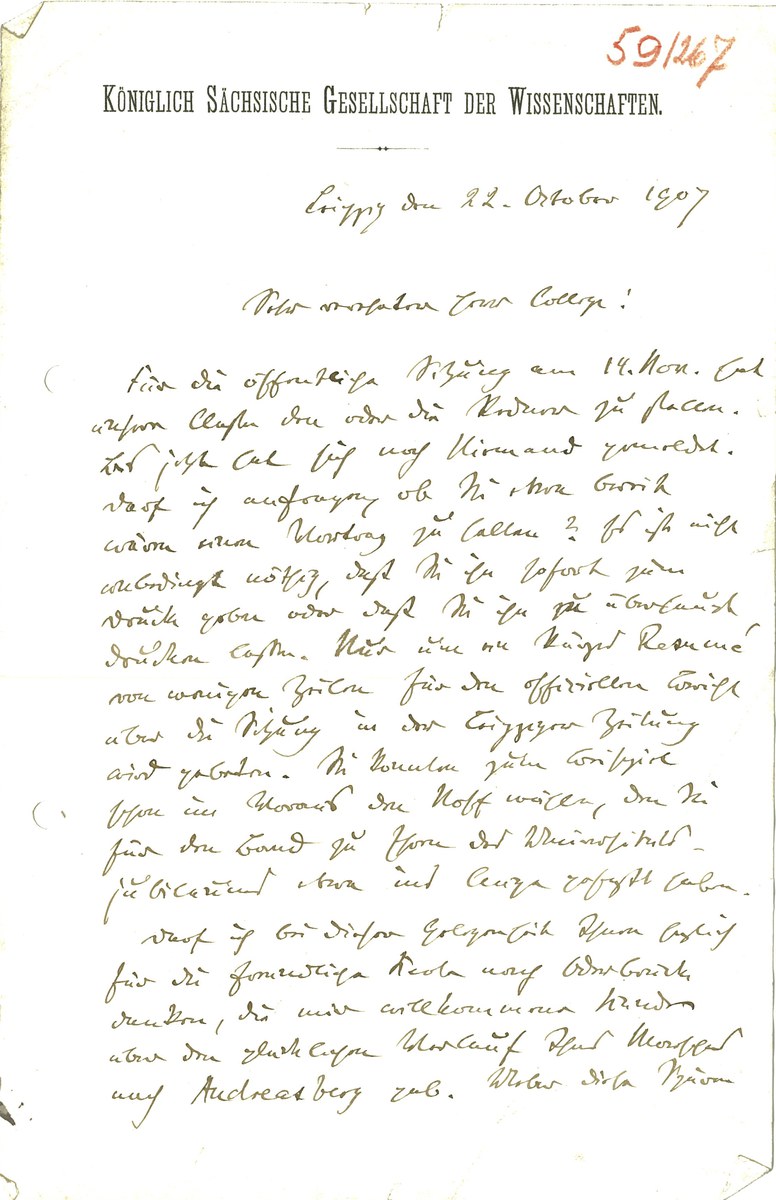 59/267
KÖNIGLICH SÄCHSISCHE GESELLSCHAFT DER WISSENSCHAFTEN.
Leipzig den 22. October 1907
Sehr verehrter Herr College!
Für die öffentliche Sitzung am 14. Nov. hat
unsere Classe den oder die Redner zu stellen.
Bis jetzt hat sich noch Niemand gemeldet.
Darf ich anfragen, ob Sie etwa bereit
wären einen Vortrag zu halten? Es ist nicht
unbedingt nöthig, daß Sie ihn sofort zum
Druck geben oder daß Sie ihn überhaupt
drucken lassen. Nur um ein kurzes Resumé
von wenigen Zeilen für den officiellen Bericht
über die Sitzung in der Leipziger Zeitung
wird gebeten. Sie könnten zum Beispiel
schon im Voraus den Stoff wählen, den Sie
für den Band zu Ehren des Universitäts-
jubiläums etwa ins Auge gefaßt haben.
Darf ich bei dieser Gelegenheit Ihnen herzlich
für die freundliche Karte nach Oderbrück
danken, die mir willkommene Kunde
über den glücklichen Verlauf Ihres Marsches
nach Andreasberg gab. Ueber diese